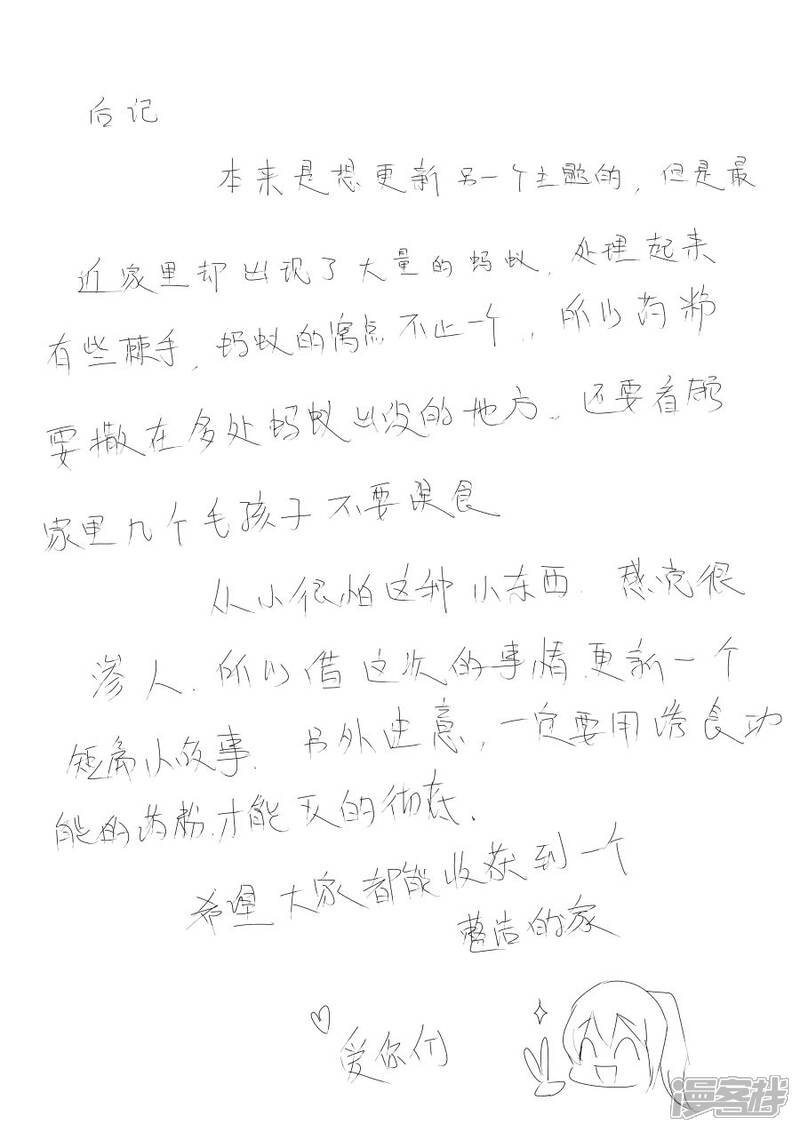 后记
本来是想更新另一个主题的，但是最
近家里却出现了大量的蚂蚁，处理起来
有些棘手，蚂蚁的窝点不止一个，所以药粉
要撒在多处蚂蚁出没的地方，还要看好
家里几个毛孩子不要误食
从小很怕这种小东西．感觉很
渗人．所以借这次的事情更新一个
短篇小故事．另外注意，一定要用诱食功
能的药粉，才能灭的彻底．
希望大家都能收获到一个
整洁的家
爱你们
漫客栈